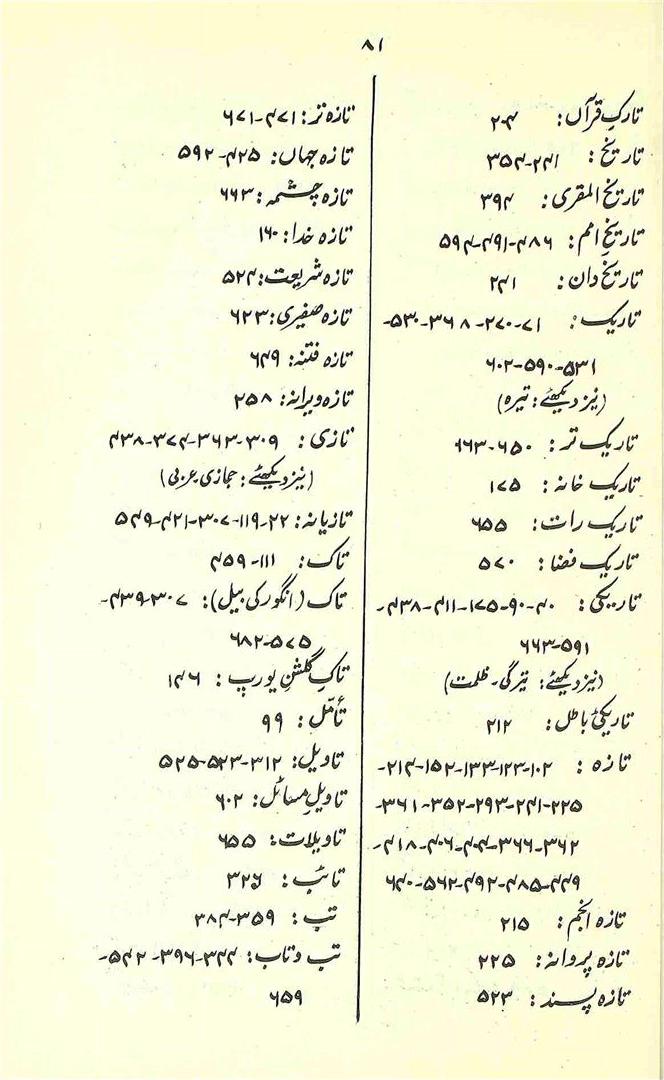 ۸۱
تارکِ قرآں: ۲۰۴
تاریخ: ۲۴۱-۳۵۴
تاریخ المقری: ۳۹۴
تاریخِ امم: ۴۸۶-۴۹۱-۵۹۴
تاریخ دان: ۲۴۱
تاریک: ۷۱-۲۷۰-۳۶۸-۵۳۰-
۵۳۱-۵۹۰-۶۰۲
(نیز دیکھئے: تیرہ)
تاریک تر: ۶۵۰-۶۶۳
تاریک خانہ: ۱۷۵
تاریک رات: ۶۵۵
تاریک فضا: ۵۷۰
تاریکی: ۴۰-۹۰-۱۷۵-۴۱۱-۴۳۸-
۵۹۱-۶۶۳
(نیز دیکھئے: تیرگی۔ ظلمت)
تاریکئ باطل: ۲۱۲
تازہ: ۱۰۲-۱۲۳-۱۳۳-۱۵۲-۲۱۴-
۲۲۵-۲۴۱-۲۹۳-۳۵۲-۳۶۱-
۳۶۲-۳۶۶-۴۰۴-۴۰۶-۴۱۸-
۴۴۹-۴۸۵-۴۹۲-۵۶۲-۶۴۰
تازہ انجم: ۲۱۵
تازہ پروانہ: ۲۲۵
تازہ پسند: ۵۲۳
تازہ تر: ۴۷۱-۶۷۱
تازہ جہاں: ۴۲۵-۵۹۲
تازہ چشمہ: ۶۶۳
تازہ خدا: ۱۶۰
تازہ شریعت: ۵۲۴
تازہ صفیری: ۶۲۳
تازہ فتنہ: ۶۴۹
تازہ ویرانہ: ۲۵۸
تازی: ۳۰۹-۳۶۳-۳۷۴-۴۳۸
(نیز دیکھئے: حجازی عربی)
تازیانہ: ۲۲-۱۱۹-۳۰۷-۴۲۱-۵۴۹
تاک: ۱۱۱-۴۵۹
تاک (انگور کی بیل): ۳۰۷-۴۳۹-
۵۷۵-۶۸۲
تاکِ گلشنِ یورپ: ۱۴۶
تأمّل: ۹۹
تاویل: ۳۱۲-۵۲۳-۵۲۵
تاویلِ مسائل: ۶۰۲
تاویلات: ۶۵۵
تائب: ۳۲۶
تپ: ۳۵۹-۳۸۴
تپ و تاب: ۳۴۴-۳۹۶-۵۴۲-
۶۵۹